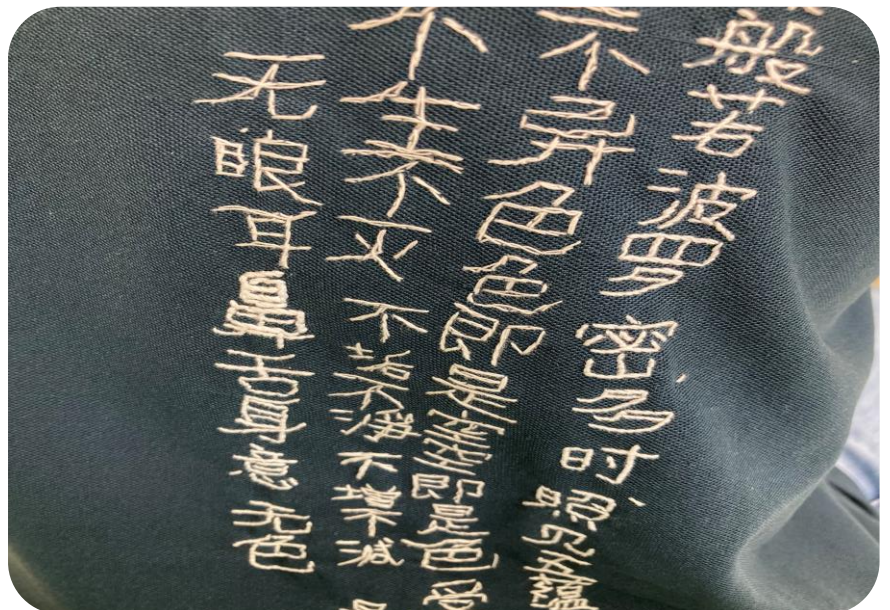 般若波罗密多时、照见五蕴
不异色色即是空空即是色受
不生不灭不垢不净不增不减
无眼耳鼻舌身意无色